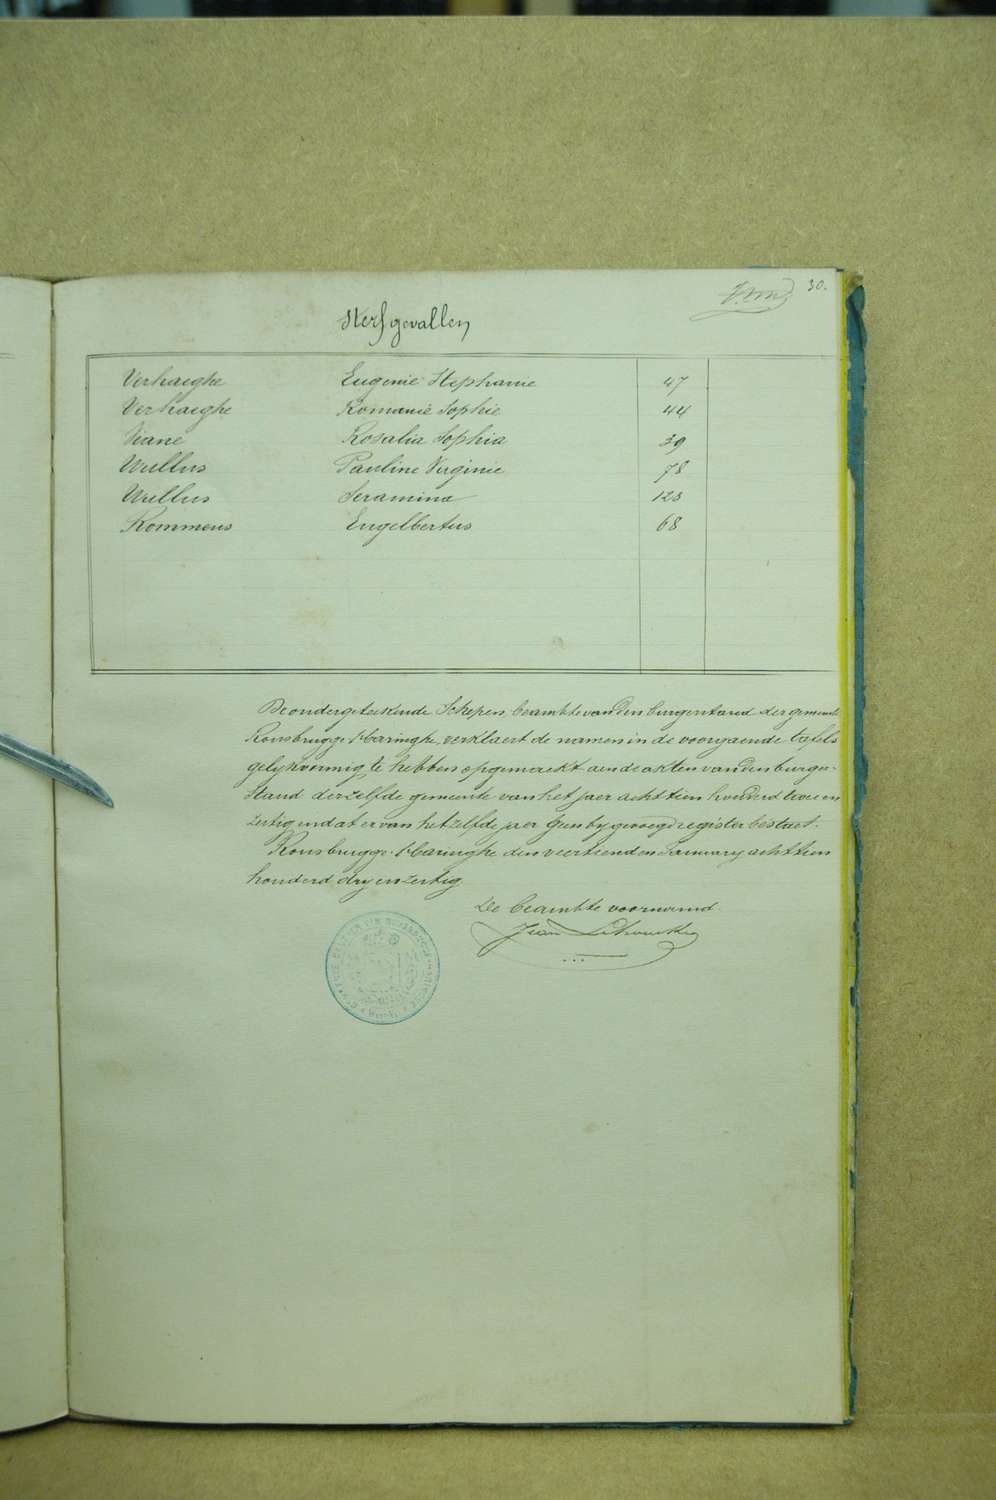 30.
Sterfgevallen
Verhaeghe Eugenie Stephanie 47
Verhaeghe Romanie Sophie 44
Viane Rosalia Sophia 39
Wullus Pauline Virginie 78
Wullus Seramina 123
Rommens Engelbertus 68
De ondergeteekende Schepen, beambte van den burgerstand der gemeente
Rousbrugge-Haringhe, verklaert de namen in de voorgaende tafels
gelykvormig te hebben opgemaekt aen de akten van den burger-
stand derzelfde gemeente van het jaer achttien honderd twee en
zestig en dat er van hetzelfde jaer geen bygevoegd register bestaet.
Rousbrugge-Haringhe den veertienden January achttien
honderd dry en zestig
De beambte voornoemd